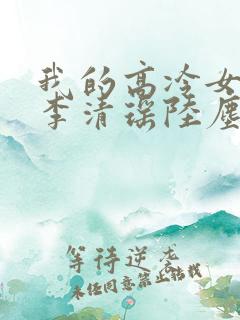 我的高冷女
李清瑶陆尘
等待逆龙
未经同意禁止搭载